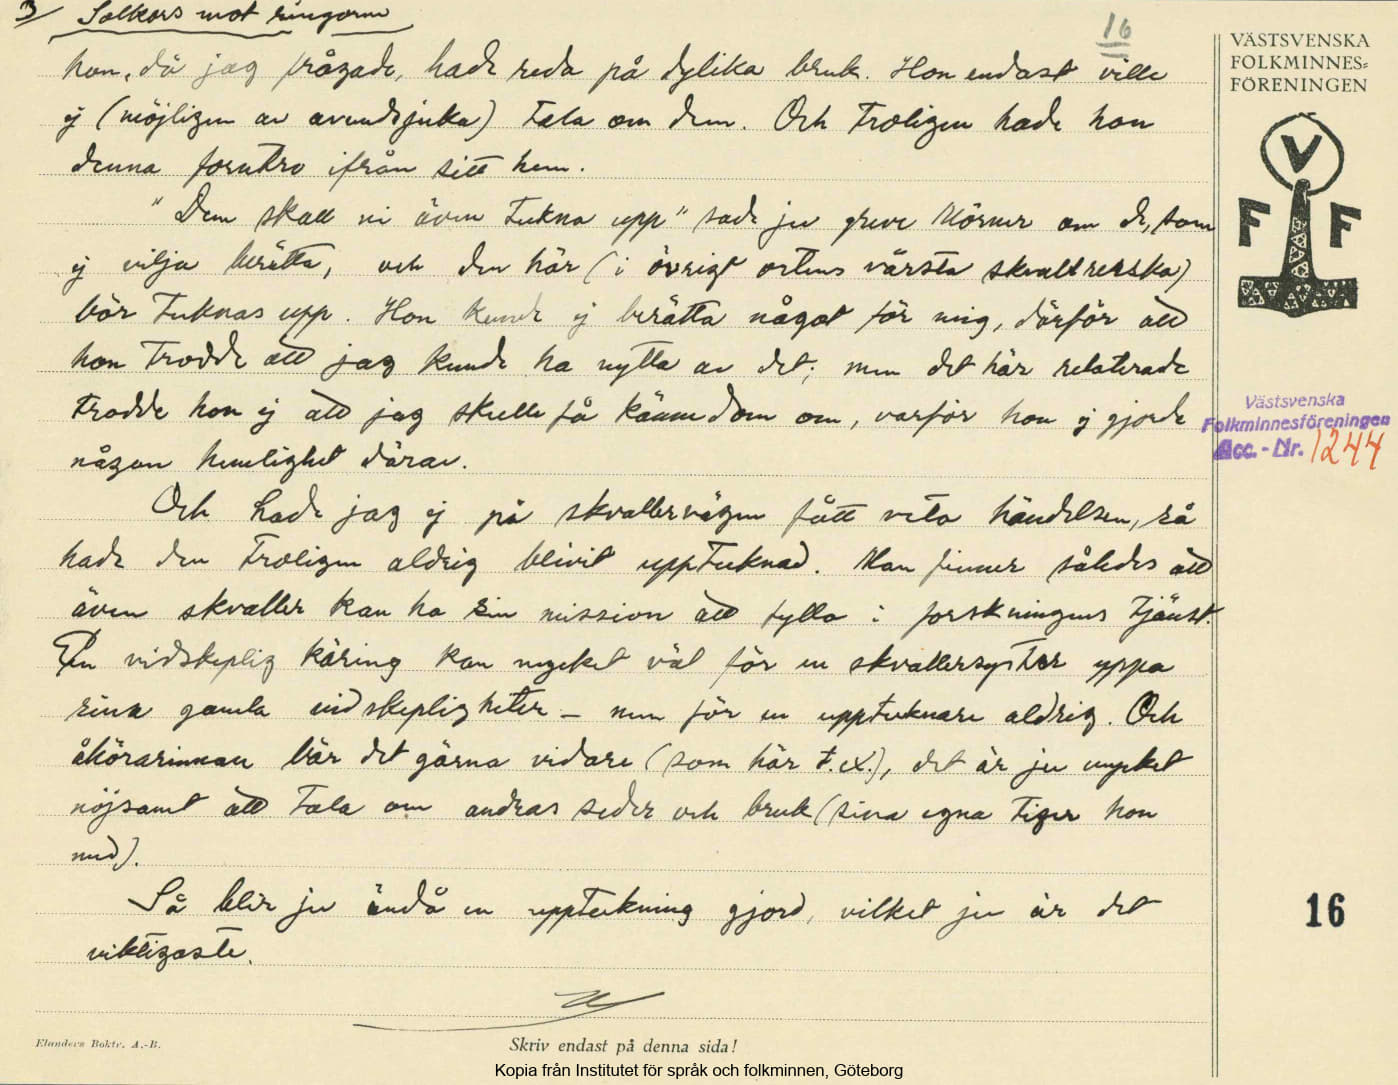 3/ Solkors mot ringorm
16
hon, då jag frågade, hade reda på dylika bruk. Hon endast ville
ej (möjligen av avundsjuka) tala om dem. Och troligen hade hon
denna forntro ifrån sitt hem.
"Dem skall vi även tukna upp" sade ju greve Mörner om de, som
ej vilja berätta, och den här (i övrigt ortens värsta skvallrerska)
bör tuknas upp. Hon kunde ej berätta något för mig, därför att
hon trodde att jag kunde ha nytta av det; men det här relaterade
trodde hon ej att jag skulle få kännedom om, varför hon ej gjorde
någon hemlighet därav.
Och hade jag ej på skvallervägen fått veta händelsen, så
hade den troligen aldrig blivit upptuknad. Man finner således att
även skvaller kan ha sin mission att fylla i forskningens tjänst.
En vidskeplig käring kan mycket väl för en skvallersyster yppa
sina gamla vidskepligheter – men för en upptuknare aldrig. Och
åhörarinnan bär det gärna vidare (som här t.ex.), det är ju mycket
nöjsamt att tala om andras seder och bruk (sina egna tiger hon
med).
Så blir ju ändå en uppteckning gjord, vilket ju är det
viktigaste.
VÄSTSVENSKA
FOLKMINNES-
FÖRENINGEN
V
F F
Västsvenska
Folkminnesföreningen
Acc.-Nr. 1244
16
Elanders Boktr. A.-B.
Skriv endast på denna sida!
Kopia från Institutet för språk och folkminnen, Göteborg